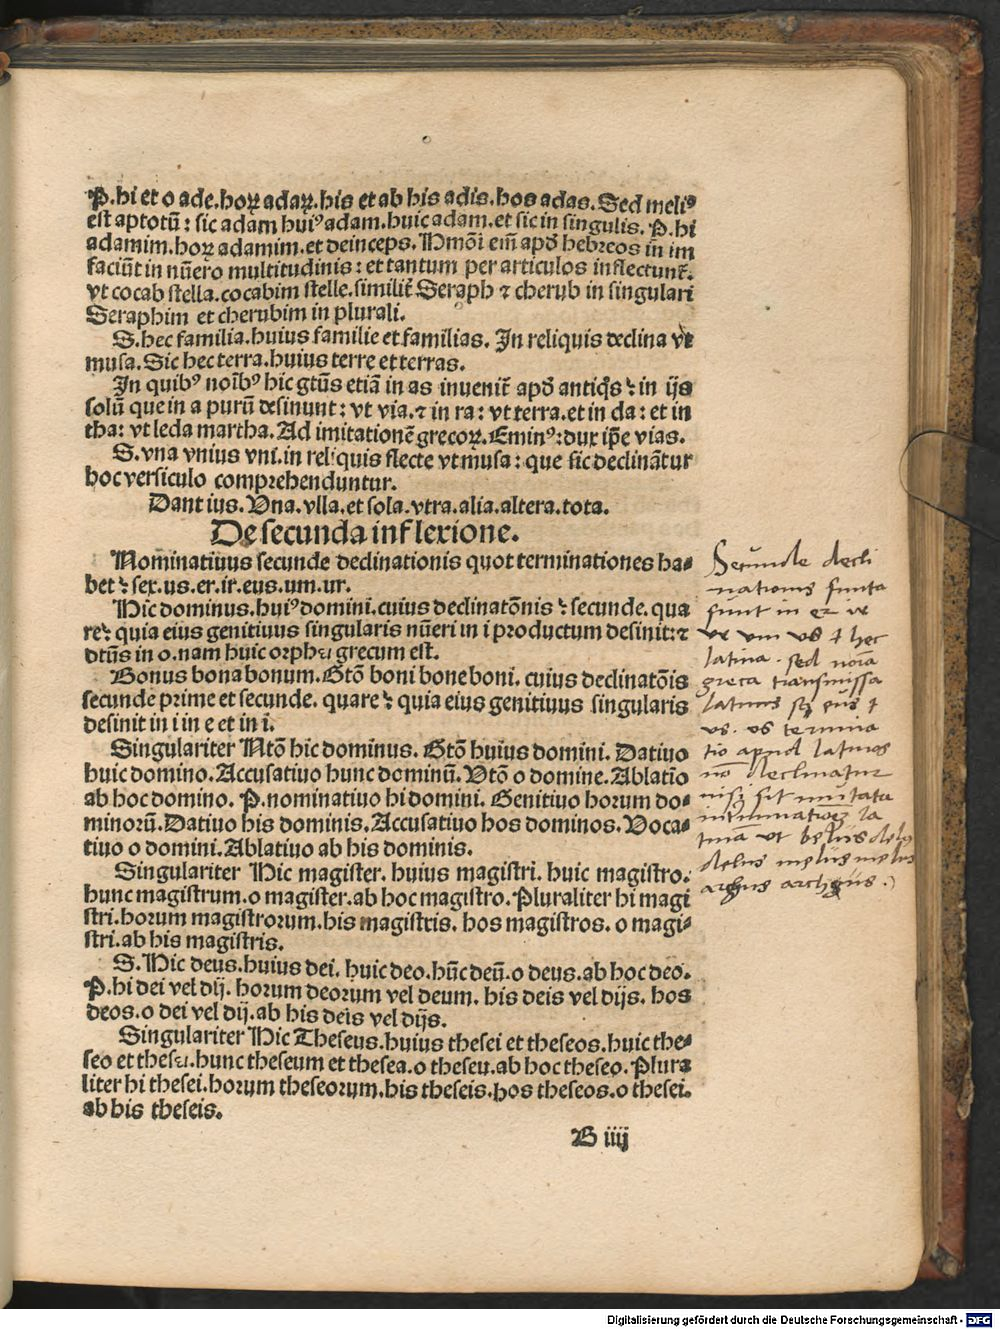 P.hi et o ade.hoꝝ adaꝝ.his et ab his adis.hos adas. Sed meliꝰ
est aptotū : sic adam huiꝰ adam.huic adam.et sic in singulis. P.hi
adamim.hoꝝ adamim.et deinceps. Hmōi em̄ apd̕ hebreos in im
faciūt in nūero multitudinis : et tantum per articulos inflectunt̄.
vt cocab stella.cocabim stelle.similit̄ Seraph ⁊ cherub in singulari
Seraphim et cherubim in plurali.
S.hec familia.huius familie et familias. In reliquis declina vt
musa. Sic hec terra.huius terre et terras.
In quibꝰ noībꝰ hic gtūs etiā in as inuenit̄ apd̕ antiqs ? in ijs
solū que in a purū desinunt : vt via.⁊ in ra : vt terra.et in da : et in
tha: vt leda martha. Ad imitationē grecoꝝ. Eminꝰ: dux ip̄e vias.
S. vna vnius vni.in reliquis flecte vt musa : que sic declināt ur
hoc versiculo comprehenduntur.
Dant ius. Vna.vlla.et sola.vtra.alia.altera.tota.
De secunda inflexione.
Nominatiuus secunde declinationis quot terminationes ha⸗
bet ? sex.us.er.ir.eus.um.ur.
Hic dominus.huiꝰ domini.cuius declinatōnis ? secunde. qua
re? quia eius genitiuus singularis nūeri in i productum desinit: ⁊
dtūs in o.nam huic orphei grecum est.
Bonus bona bonum. Gtō boni bone boni. cuius declinatōis
secunde prime et secunde. quare ? quia eius genitiuus singularis
desinit in i in e et in i.
Singulariter Ntō hic dominus. Gtō huius domini. Datiuo
huic domino. Accusatiuo hunc dominū. Vtō o domine. Ablatio
ab hoc domino. P. nominatiuo hi domini. Genitiuo horum do⸗
minorū. Datiuo his dominis. Accusatiuo hos dominos. Voca⸗
tiuo o domini. Ablatiuo ab his dominis.
Singulariter Hic magister. huius magistri. huic magistro.
hunc magistrum.o magister.ab hoc magistro. Pluraliter hi magi
stri.horum magistrorum.his magistris. hos magistros. o magi⸗
stri.ab his magistris.
S. Hic deus.huius dei. huic deo.hūc deū.o deus.ab hoc deo.
P.hi dei vel dij. horum deorum vel deum. his deis vel dijs. hos
deos.o dei vel dij.ab his deis vel dijs.
Singulariter Hic Theseus.huius thesei et theseos.huic the⸗
seo et thesei.hunc theseum et thesea.o theseu.ab hoc theseo. Plura
liter hi thesei.horum theseorum.his theseis.hos theseos.o thesei.
ab his theseis.
B iiij
Secunde decli
nationis
sunt in er ir
ur um us ⁊ hec
latina . sed noīa
greca transmissa
latinis eus ⁊
us . os termina
tio apud latinos
nō declinatur
nisi sit mutata
in la
tinā ut
delus melus
archus .
Digitalisierung gefördert durch die Deutsche Forschungsgemeinschaft - DFG